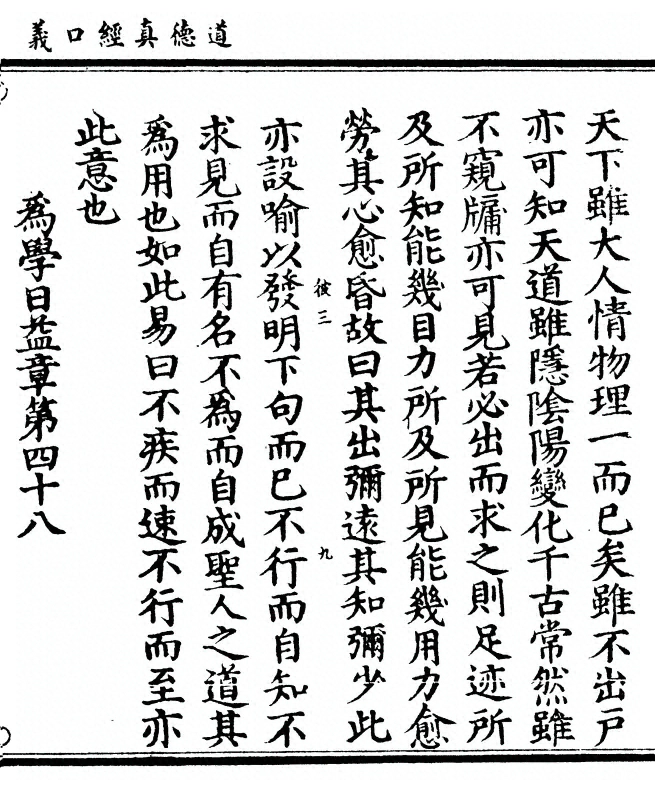 道德真經口義
天下雖大人情物理一而已矣雖不出戶
亦可知天道雖隱陰陽變化千古常然雖
不窺牖亦可見若必出而求之則足迹所
及所知能幾目力所及所見能幾用力愈
勞其心愈昏故曰其出彌遠其知彌少此
彼三
九
亦設喻以發明下句而已不行而自知不
求見而自有名不為而自成聖人之道其
為用也如此易曰不疾而速不行而至亦
此意也
為學日益章第四十八